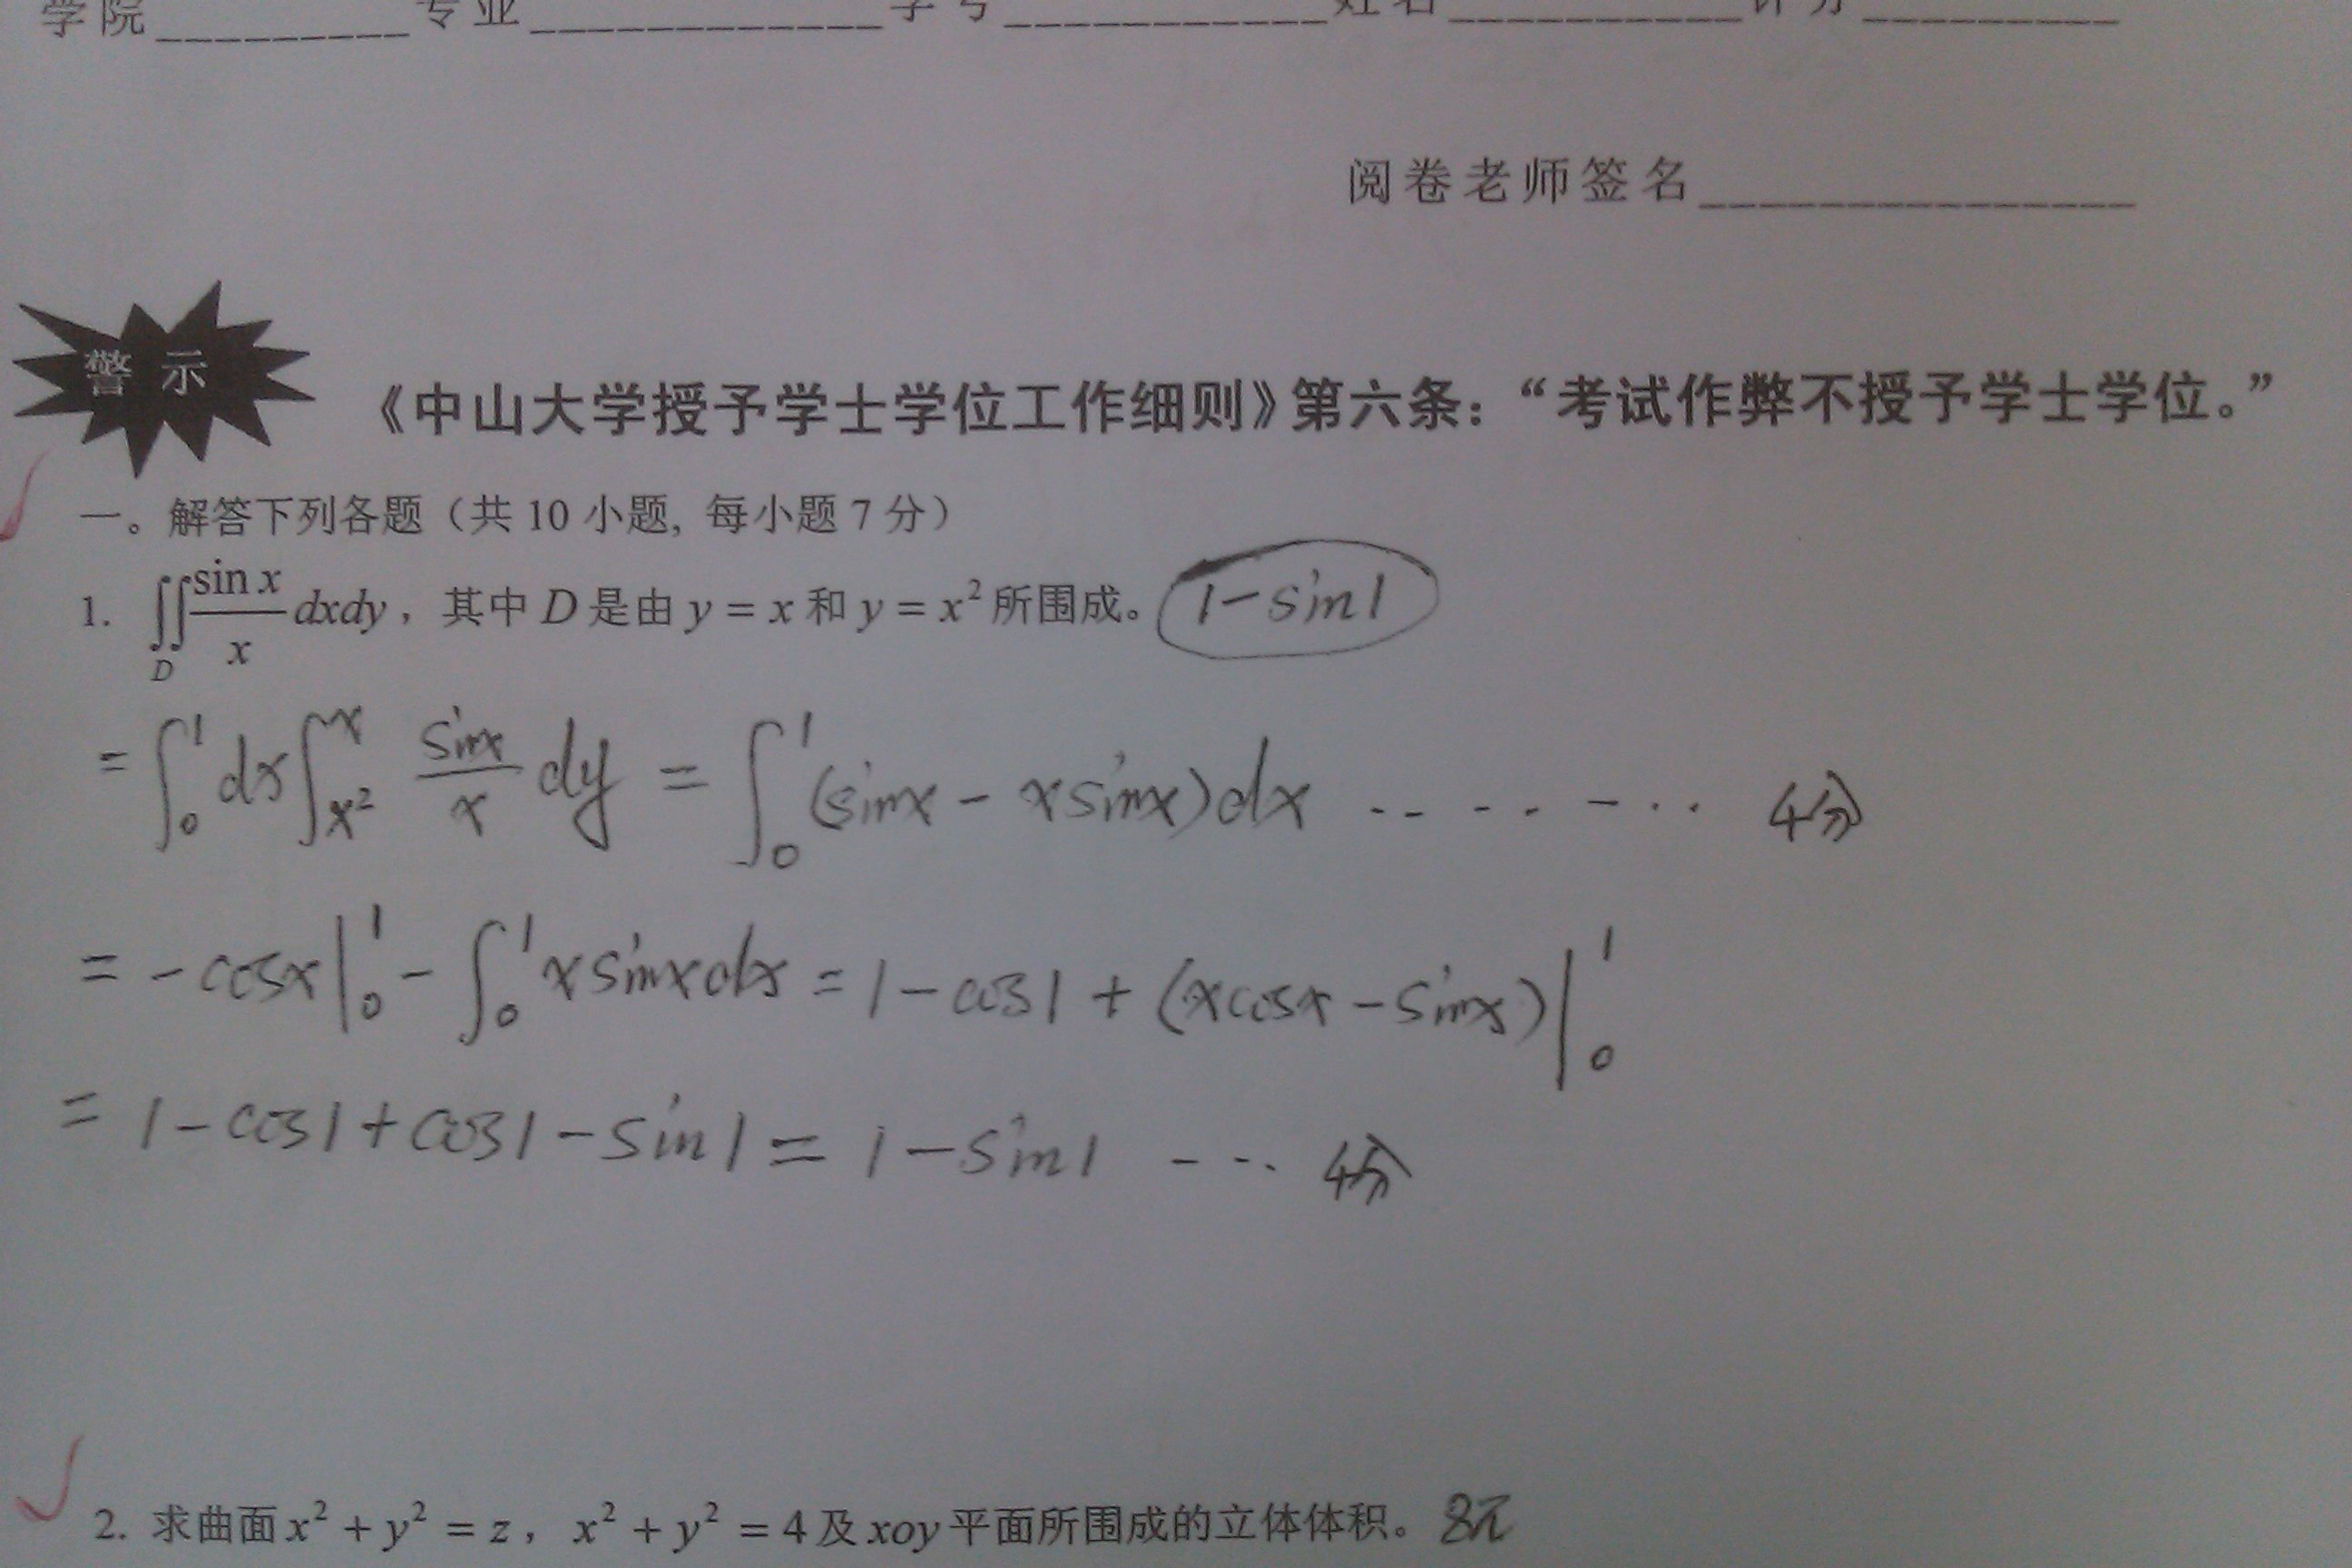 学院_________专业____________学号___________姓名__________评分_________
阅卷老师签名_______________
警 示
《中山大学授予学士学位工作细则》第六条：“考试作弊不授予学士学位。”
一。解答下列各题（共 10 小题, 每小题 7 分）
1. ∬_D (sin x / x) dxdy，其中 D 是由 y = x 和 y = x² 所围成。 1-sin1
= ∫_0^1 dx ∫_{x²}^x (sinx / x) dy = ∫_0^1 (sinx - xsinx)dx ········ 4分
= -cosx|_0^1 - ∫_0^1 xsinxdx = 1-cos1 + (xcosx - sinx)|_0^1
= 1-cos1+cos1-sin1 = 1-sin1 ···· 4分
2. 求曲面 x² + y² = z，x² + y² = 4 及 xoy 平面所围成的立体体积。 8π